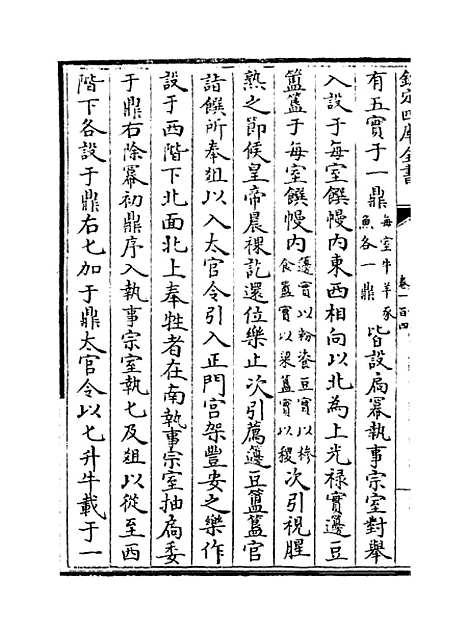 欽定四庫全書
卷一百四
有五實于一鼎每室牛羊豕魚各一鼎皆設扃冪執事宗室對舉
入設于每室饌幔内東西相向以北為上光禄實籩豆
簠簋于每室饌幔内籩實以粉餈豆實以糝食簠實以粱簋實以稷次引視腥
熟之節候皇帝晨祼訖還位樂止次引薦籩豆簠簋官
詣饌所奉俎以入太官令引入正門宫架豐安之樂作
設于西階下北面北上奉牲者在南執事宗室抽扃委
于鼎右除冪初鼎序入執事宗室執匕及俎以從至西
階下各設于鼎右匕加于鼎太官令以匕升牛載于一